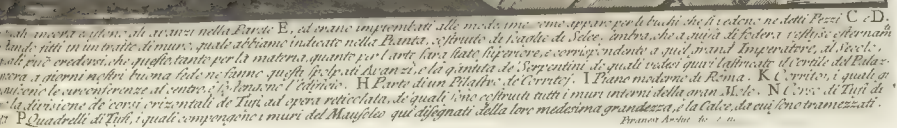 ancora esistono gli avanzi nella Parete E, ed erano impiombati alle medesime come appare per li buchi che si vedono ne detti Pezzi C e D.
fitti in un tratto di muro, quale abbiamo indicato nella Pianta, costruito di scaglie di Selce, sembra che a guisa di fodera vestisse esternam
può credersi, che questo tanto per la materia, quanto per l'arte sara stato superiore, e corrispondente a quel grand Imperatore, al Secolo,
ancora a giorni nostri buona fede ne fanno questi spolpati Avanzi, e la quantità de Serpentini, de quali vedesi quasi lastricato il Cortile del Palaz-
le circonferenze al centro, e sostengono l'edificio. H Parte di un Pilastro de Corritoj. I Piano moderno di Roma. K Corritoj, i quali gi
la divisione de corsi orizontali de Tufi, ad opera reticolata, de quali sono costruiti tutti i muri interni della gran Mole. N Corso di Tufi di
P Quadrelli di Tufi, i quali compongono i muri del Mausoleo qui disegnati della loro medesima grandezza, e la Calce, da cui sono tramezzati.
Piranesi Archit.